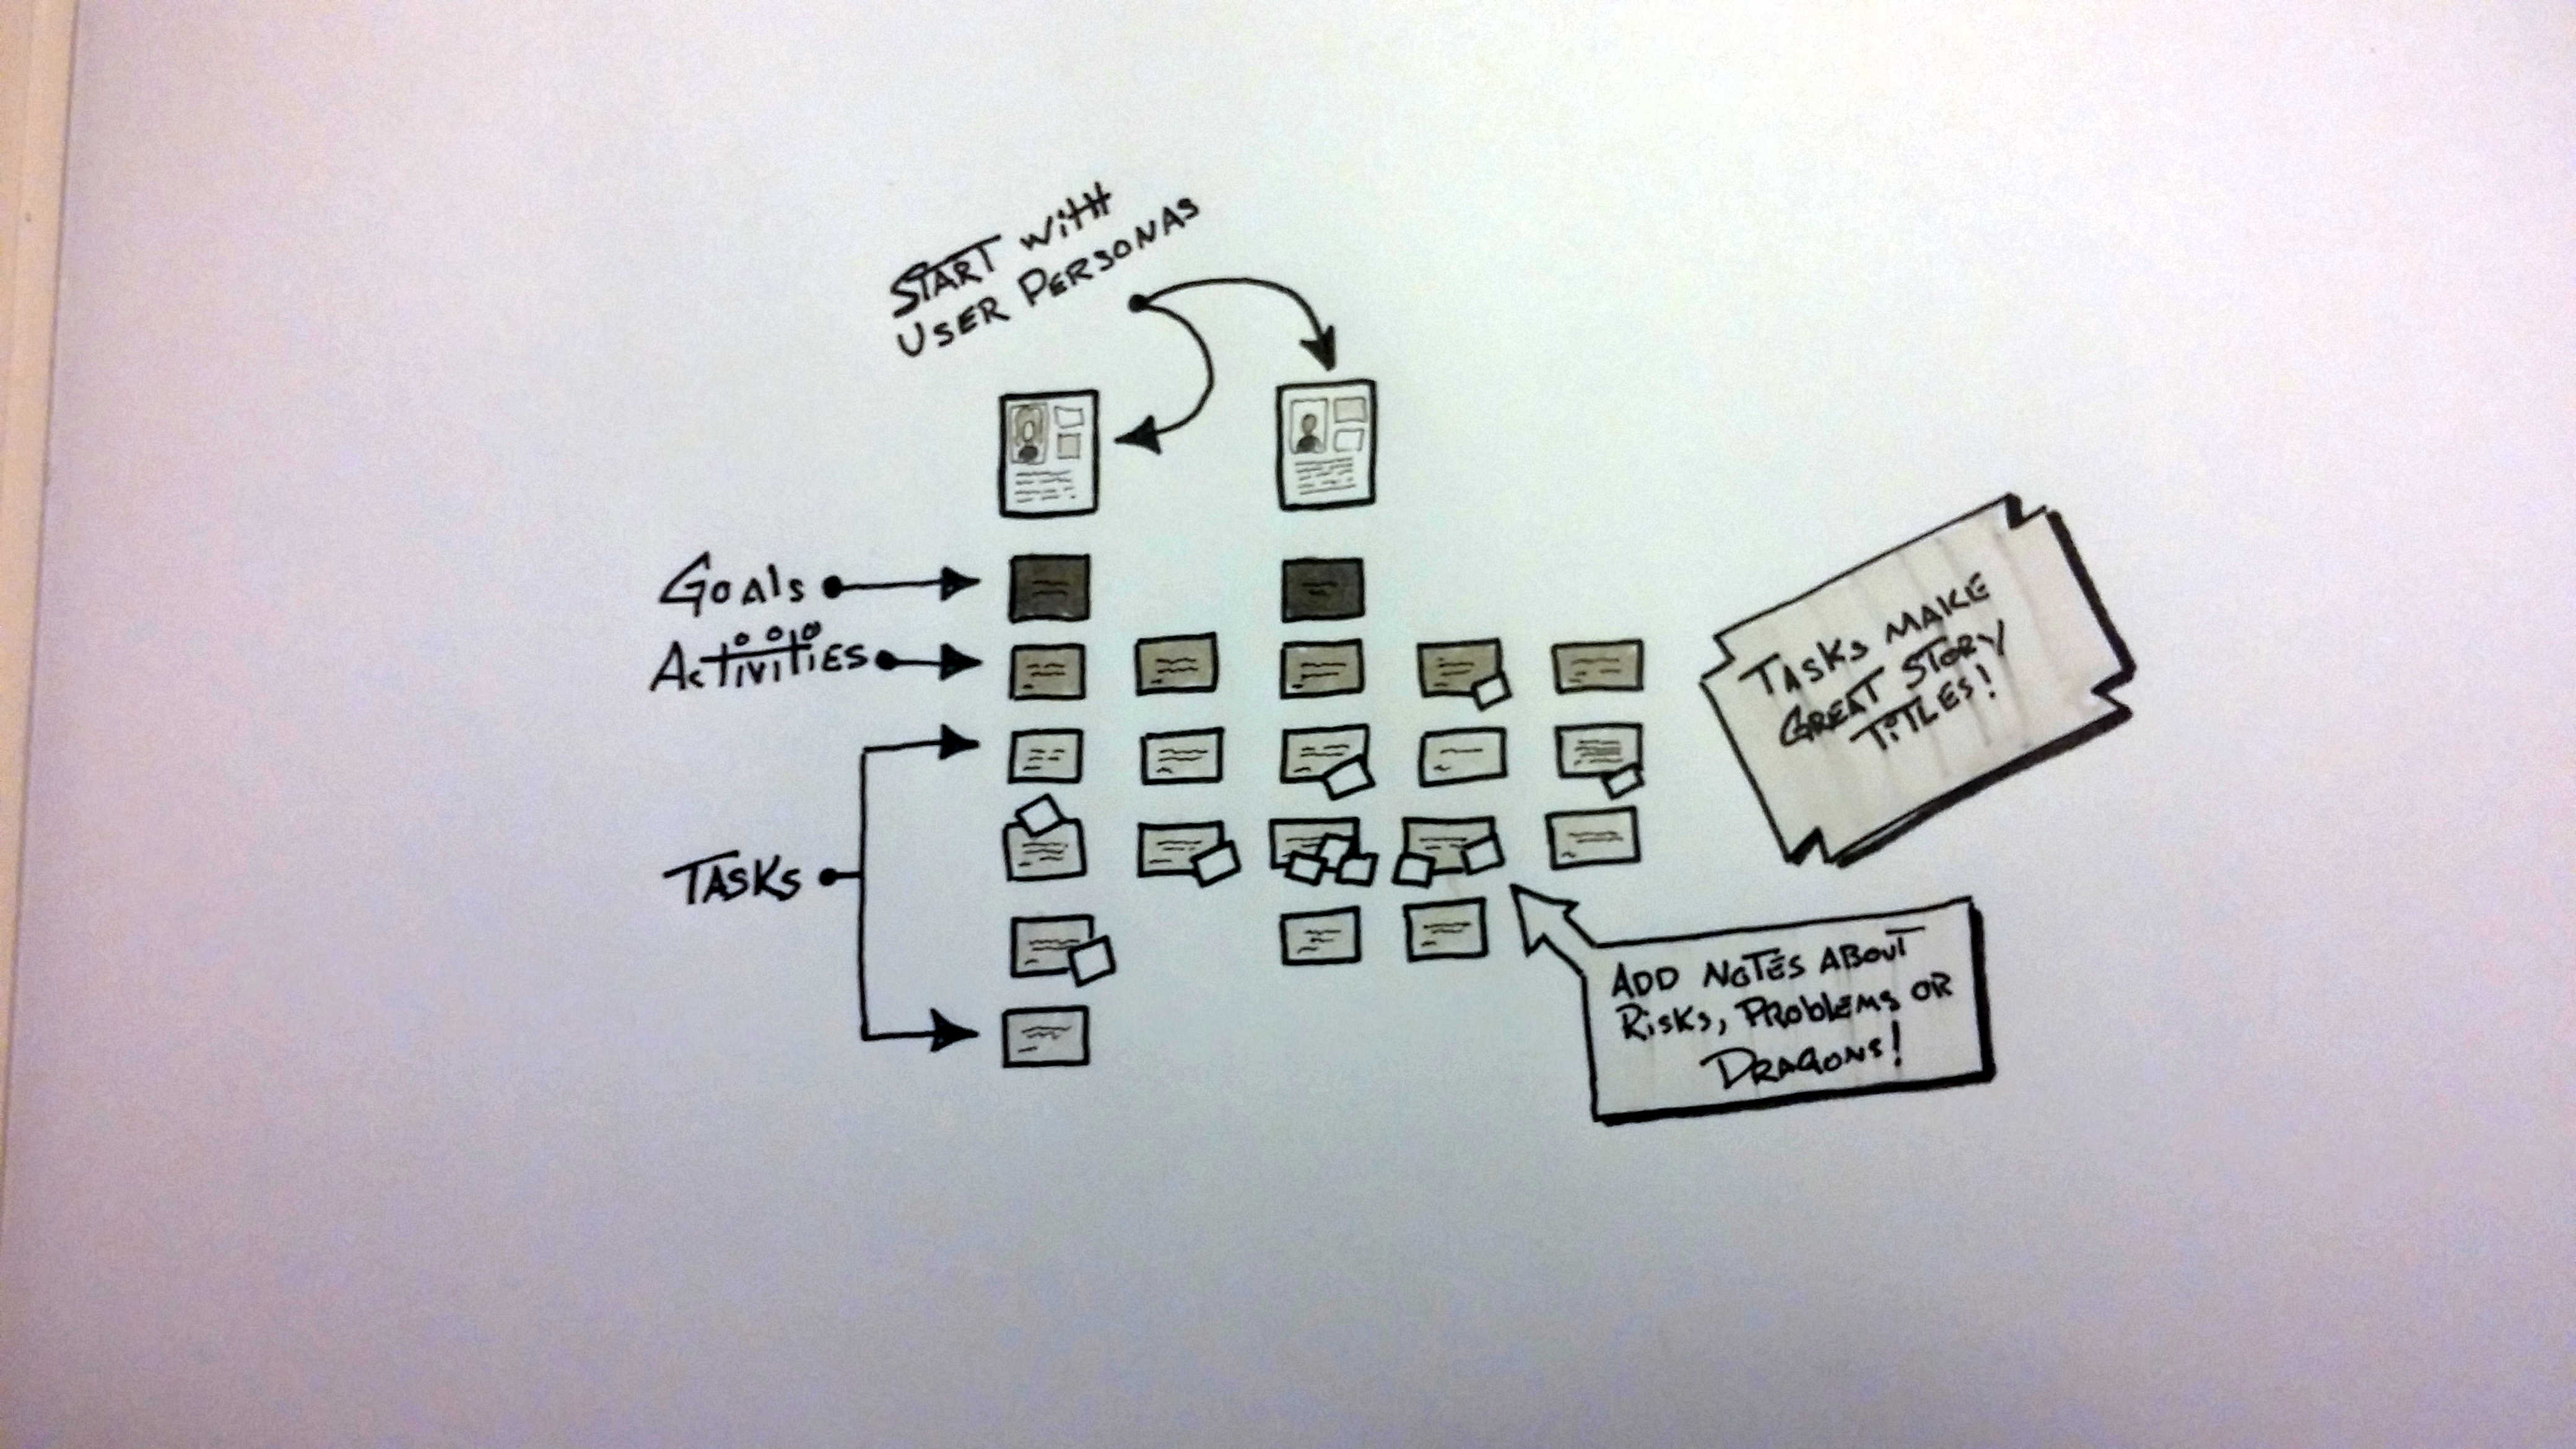 START WITH
USER PERSONAS
GOALS
ACTIVITIES
TASKS
TASKS MAKE
GREAT STORY
TITLES!
ADD NOTES ABOUT
RISKS, PROBLEMS OR
DRAGONS!